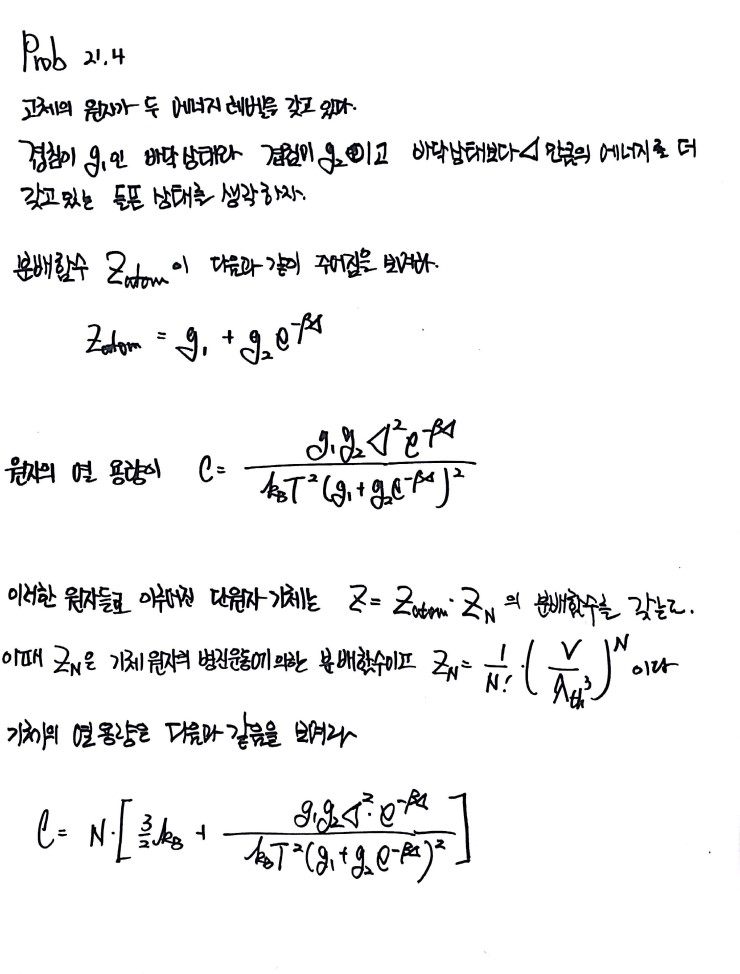 Prob 21.4
고체의 원자가 두 에너지 레벨을 갖고 있다.
겹침이 g₁인 바닥상태와 겹침이 g₂이고 바닥상태보다 Δ 만큼의 에너지를 더
갖고 있는 들뜬 상태를 생각하자.
분배함수 Z_atom이 다음과 같이 주어짐을 보여라.
Z_atom = g₁ + g₂e^{-βΔ}
원자의 열 용량이 C = \frac{g₁g₂Δ²e^{-βΔ}}{k_BT²(g₁+g₂e^{-βΔ})²}
이러한 원자들로 이루어진 단원자 기체는 Z = Z_atom · Z_N 의 분배함수를 갖는다.
이때 Z_N은 기체 원자의 병진운동에 의한 분배함수이고 Z_N = \frac{1}{N!} · (\frac{V}{λ_{th}³})^N 이다
기체의 열용량은 다음과 같음을 보여라
C = N·[\frac{3}{2}k_B + \frac{g₁g₂Δ²·e^{-βΔ}}{k_BT²(g₁+g₂e^{-βΔ})²}]